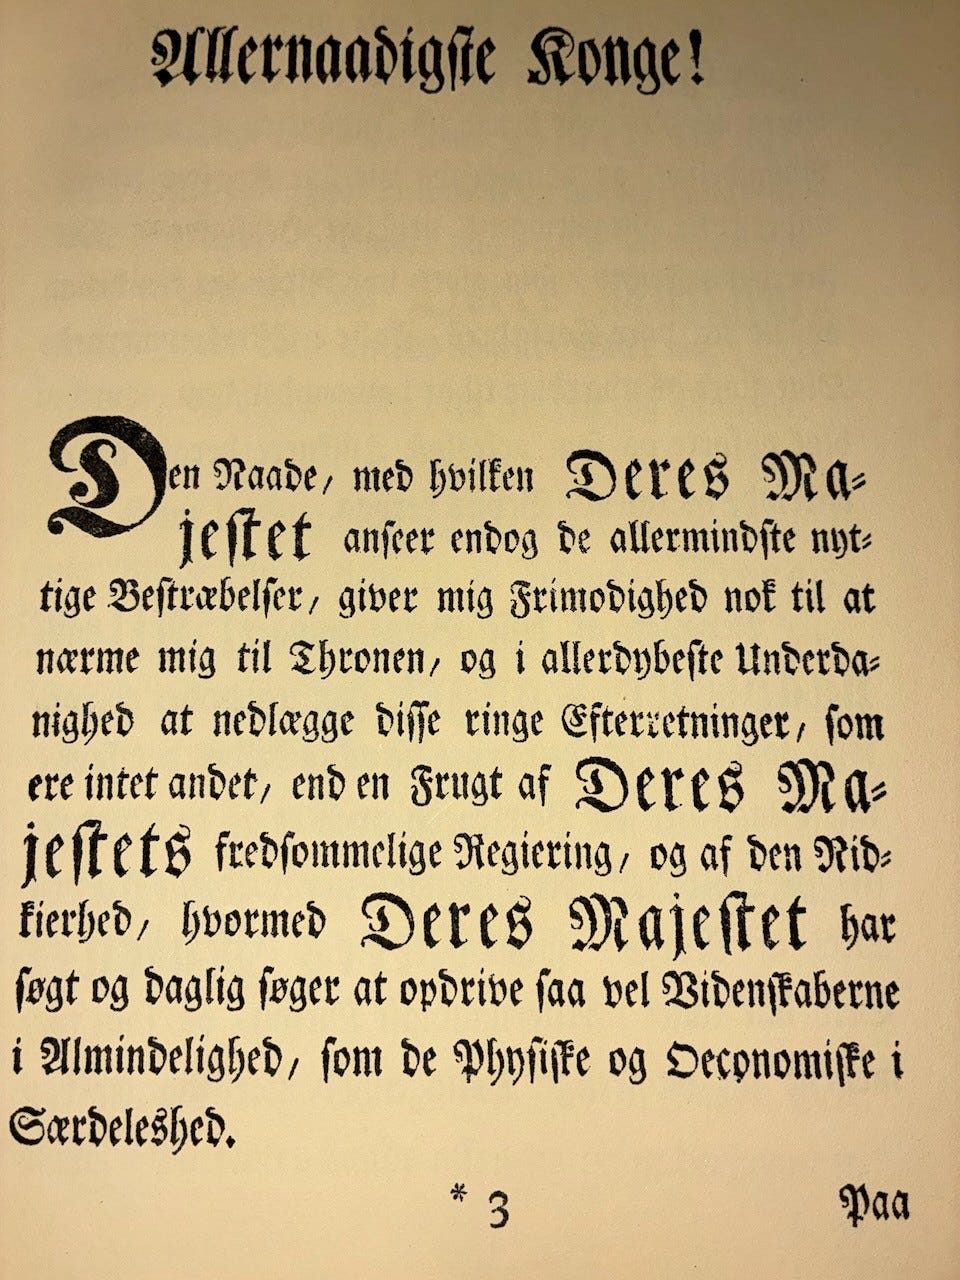 Allernaadigste Konge!
Den Naade, med hvilken Deres Ma-
jestet anseer endog de allermindste nyt-
tige Bestræbelser, giver mig Frimodighed nok til at
nærme mig til Thronen, og i allerdybeste Underda-
nighed at nedlægge disse ringe Efterretninger, som
ere intet andet, end en Frugt af Deres Ma-
jestets fredsommelige Regiering, og af den Nid-
kierhed, hvormed Deres Majestet har
søgt og daglig søger at opdrive saa vel Videnskaberne
i Almindelighed, som de Physiske og Oeconomiske i
Særdeleshed.
* 3 Paa